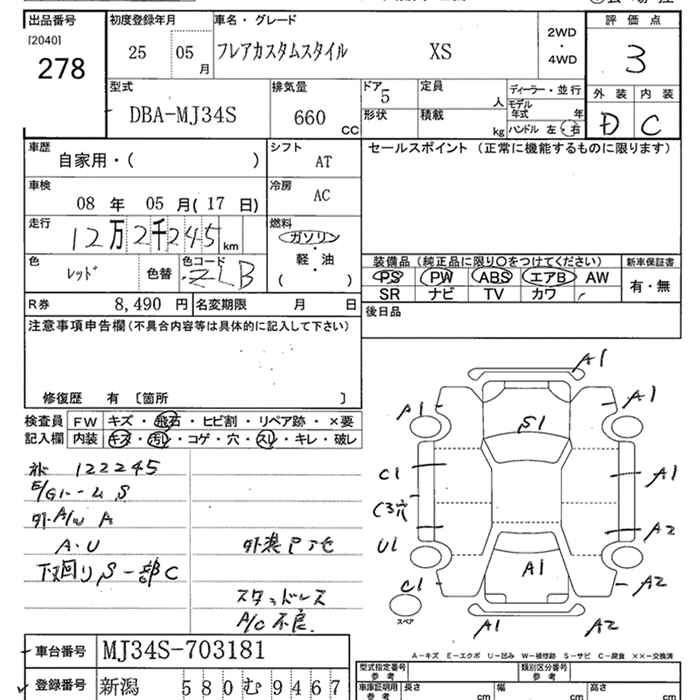 出品番号 初度登録年月 車名・グレード 評価点
[2040]
278
25 05 月 フレアカスタムスタイル XS 2WD・4WD 3
型式 排気量 ドア 定員 ディーラー・並行 外装 内装
DBA-MJ34S 660 CC 5 人 モデル年式 年 D C
形状 積載 kg ハンドル 左・右
車歴 シフト セールスポイント (正常に機能するものに限ります)
自家用・( ) AT
車検 冷房
08 年 05 月( 17 日) AC
走行 燃料
12万2千245 km ガソリン・軽・油
色 色コード ( )
レッド 色替 ZLB
装備品 (純正品に限り○をつけてください) 新車保証書
PS PW ABS エアB AW 有・無
SR ナビ TV カワ
R券 8,490 円 名変期限 月 日
後日品
注意事項申告欄(不具合内容等は具体的に記入して下さい)
修復歴 有 〔箇所 〕
検査員 FW キズ・飛石・ヒビ割・リペア跡・×要
記入欄 内装 キズ・汚レ・コゲ・穴・スレ・キレ・破レ
122245
E/Gルーム S
外A/W A
A・U
下回りS一部C
スタッドレス
A/C不良
A1
A1
A1
S1
C1
A1
C3穴
A2
U1
A1
C1
A2
スペア
A1
A2
A-キズ E-エクボ U-凹み W-補修跡 S-サビ C-腐食 ××-交換済
車台番号 MJ34S-703181
登録番号 新潟 580む9467
型式指定番号 参考 類別区分番号 参考
車庫証明用 参考 長さ cm 幅 cm 高さ cm